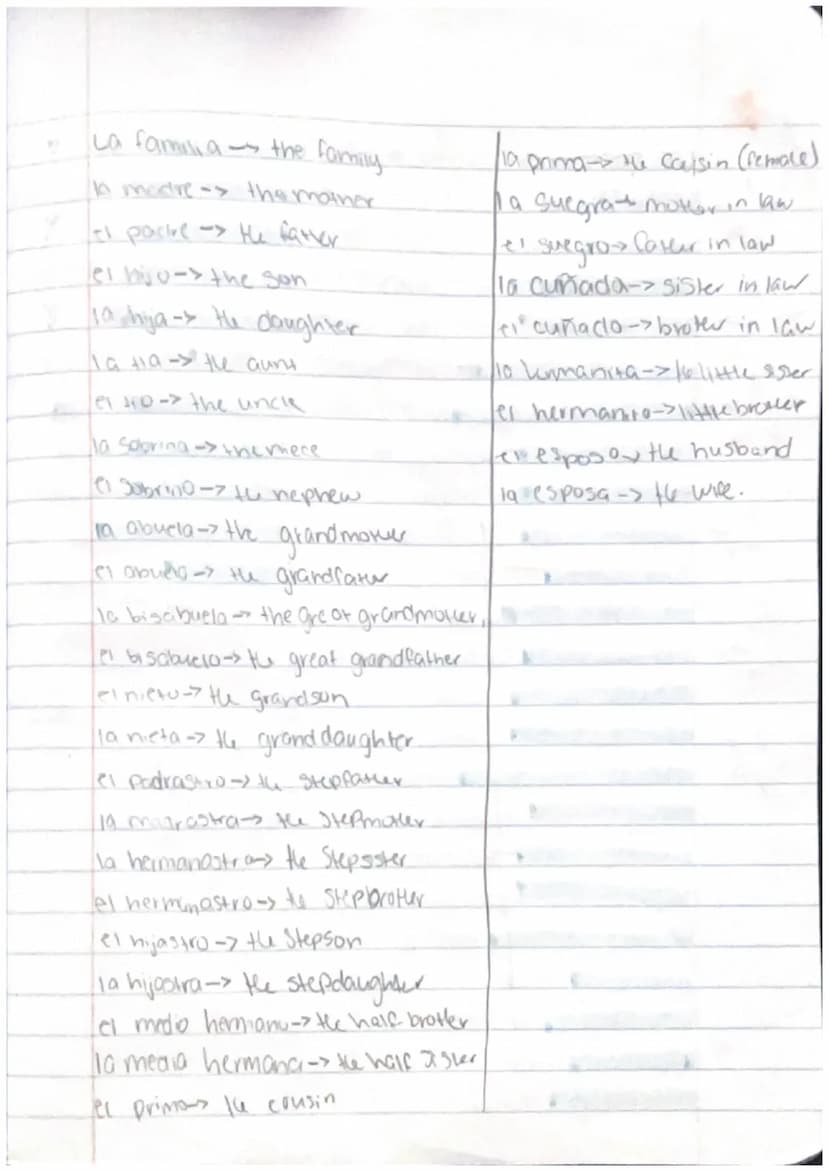 La familia -> the family
la madre -> the mother
el padre -> the father
el hijo -> the son
la hija -> the daughter
la tia -> the aunt
el tio -> the uncle
la sobrina -> the niece
el sobrino -> the nephew
la abuela -> the grandmother
el abuelo -> the grandfather
la bisabuela -> the great grandmother
el bisabuelo -> the great grandfather
el nieto -> the grandson
la nieta -> the granddaughter
el padrastro -> the stepfather
la madrastra -> the stepmother
la hermanastra -> the stepsister
el hermanastro -> the stepbrother
el hijastro -> the stepson
la hijastra -> the stepdaughter
el medio hermano -> the half brother
la media hermana -> the half sister
el primo -> the cousin
la prima -> the cousin (female)
la suegra -> mother in law
el suegro -> father in law
la cuñada -> sister in law
el cuñado -> brother in law
la hermanita -> the little sister
el hermanito -> little brother
el esposo -> the husband
la esposa -> the wife.